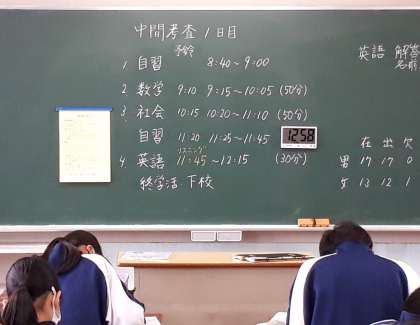 中間考査 1日目
予鈴
1 自習 8:40~9:00
2 数学 9:10 9:15~10:05 (50分)
3 社会 10:15 10:20~11:10 (50分)
自習 11:20 11:25~11:45
リスニング
4 英語 11:45~12:15 (30分)
終学活 下校
12:58
英語 解答
名前
在 出 欠
男 17 17 0
女 13 12 1